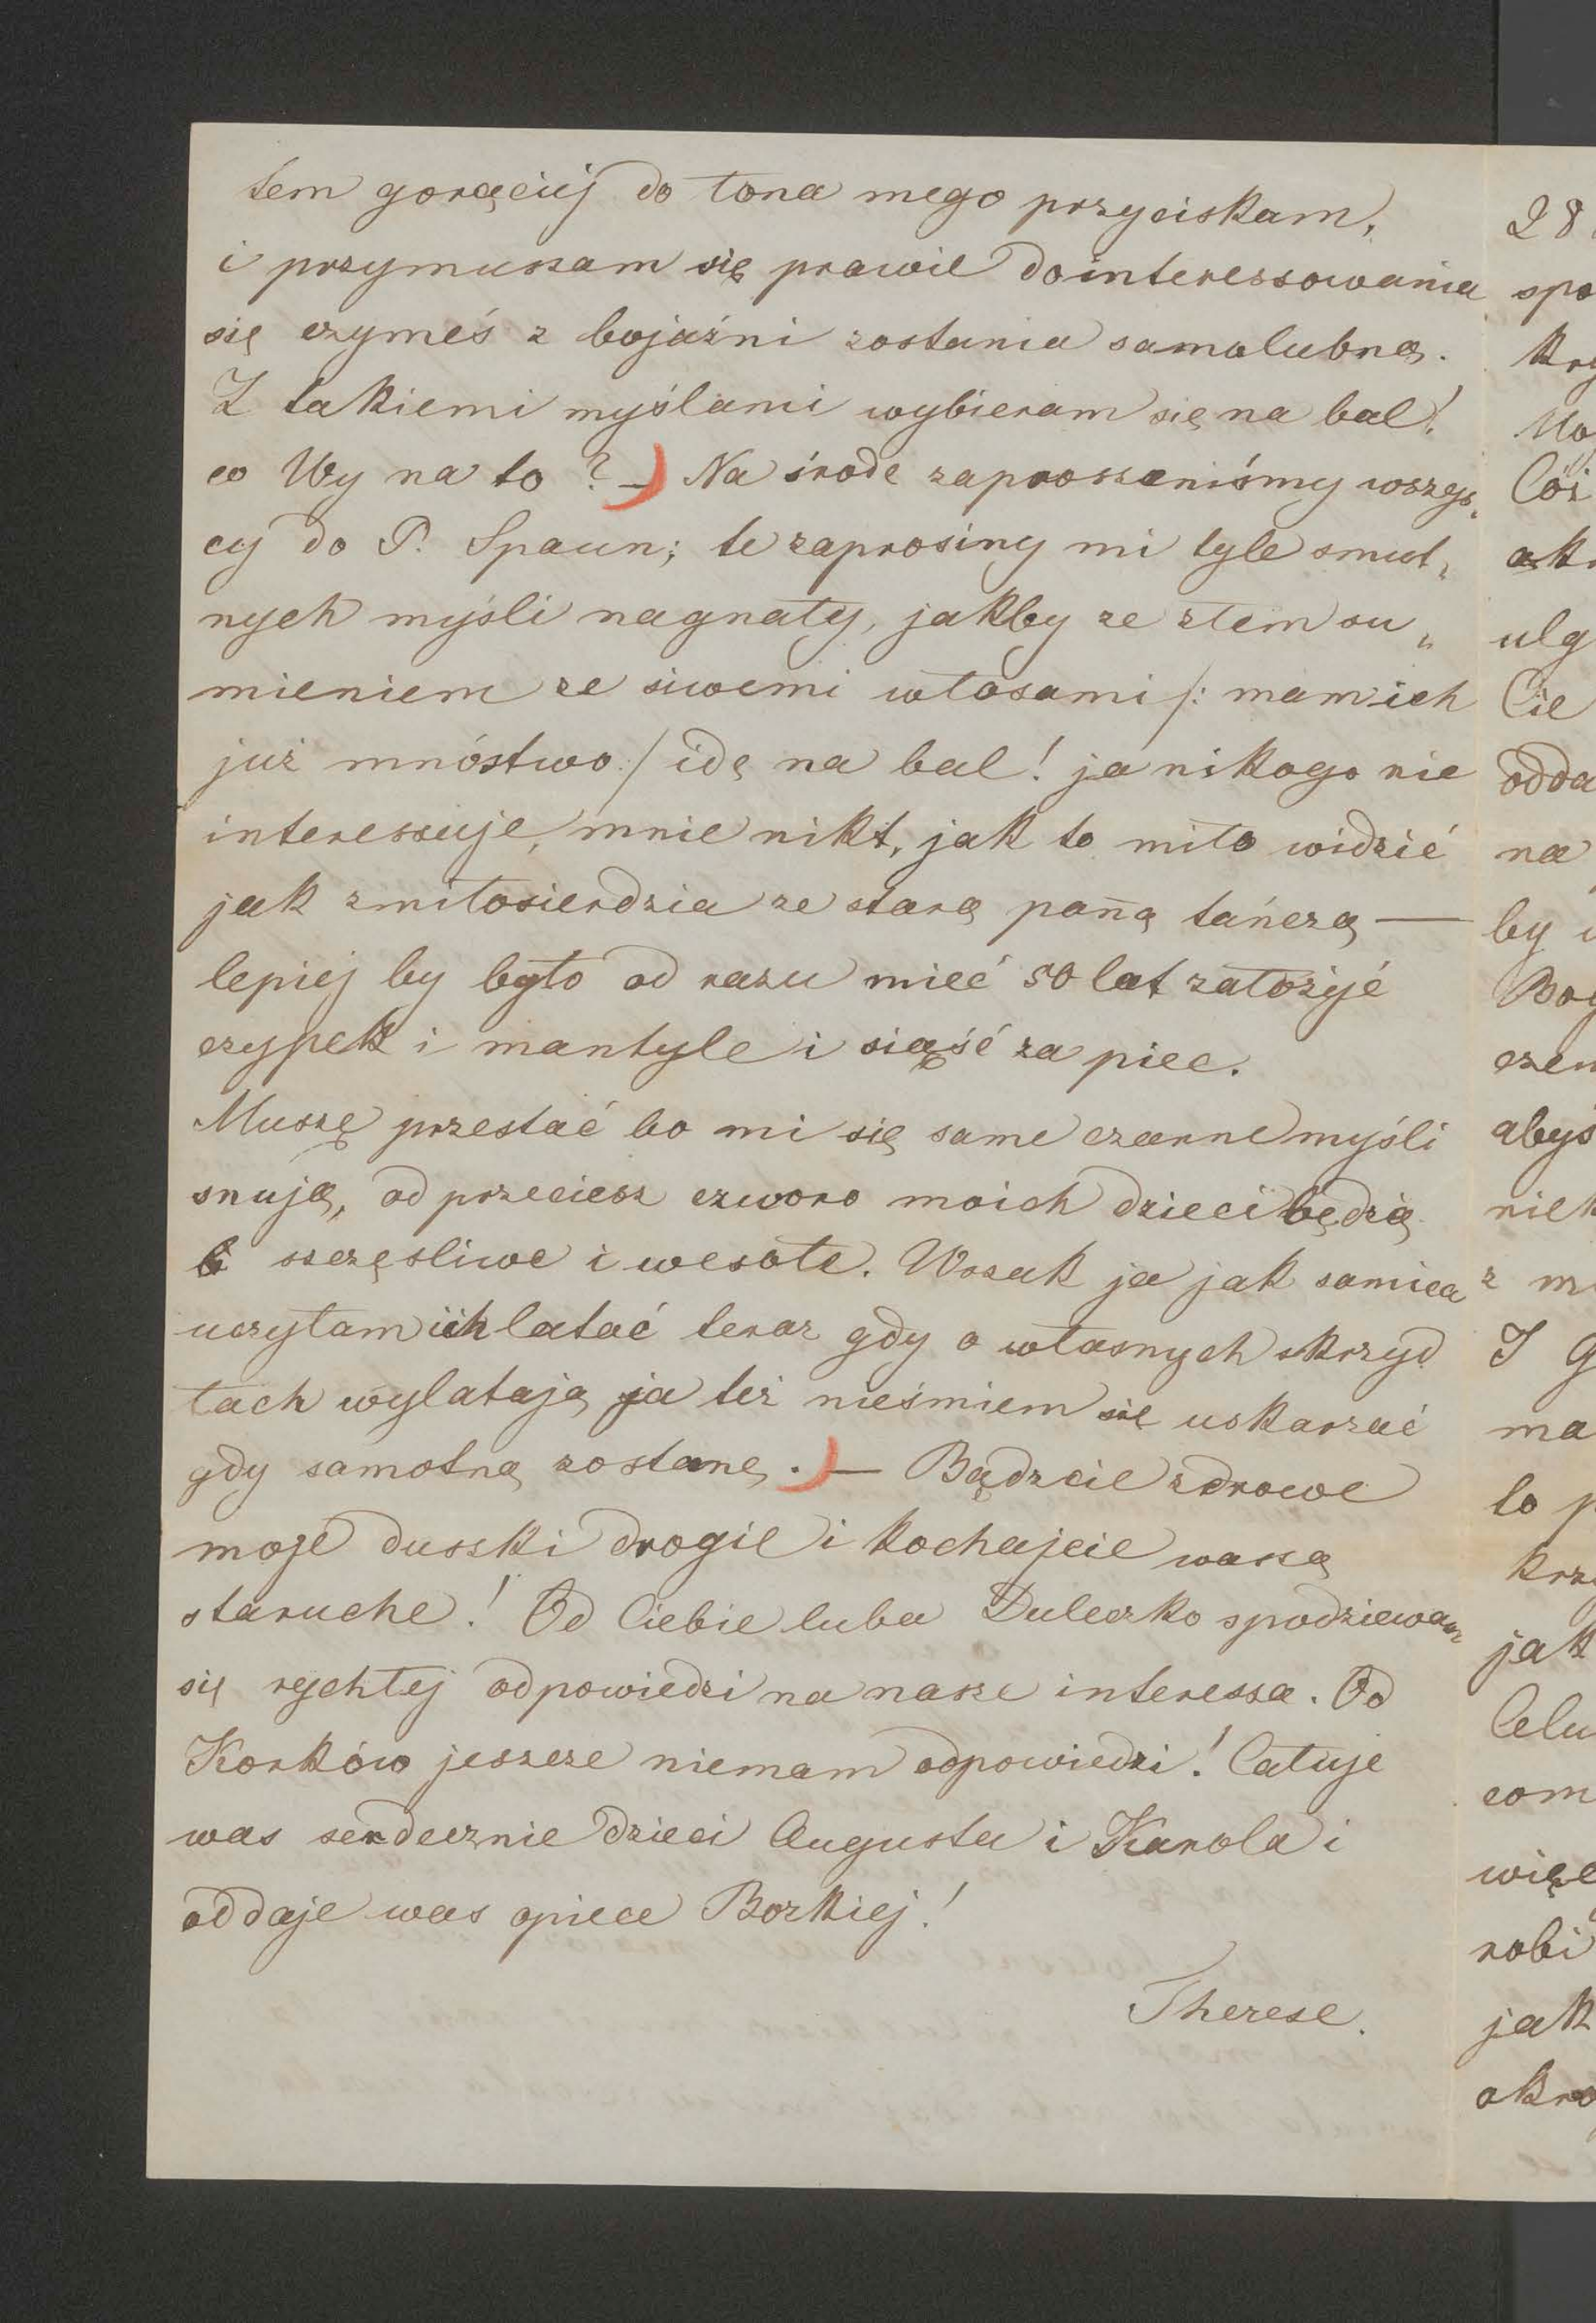 tem goręciéj do łona mego przyciskam,
i przymuszam się prawie do interessowania
się czymeś z bojaźni zostania samolubną.
Z takiemi myślami wybieram się na bal!
co Wy na to? — Na środe zaproszeniśmy wszys„
cy do P. Spaun; te zaprosiny mi tyle smut„
nych myśli nagnały, jakby ze złem su„
mieniem ze siwemi włosami /: mam ich
już mnóstwo :/ idę na bal! ja nikogo nie
interessuje, mnie nikt, jak to miło widzić
jak z miłosierdzia ze starą pan̄ą tańczą —
lepiej by było od razu mieć 50 lat załozyć
czypek i mantyle i siąść za piec.
Muszę przestać bo mi się same czarne myśli
snują, od przeciesz czworo moich dzieci będzią
szczęsliwe i wesołe. Wszak ja jak samica
uczyłam ich latać teraz gdy o własnych skrzyd
łach wylatają ja też nieśmiem się uskarzać
gdy samotną zostanę. — Bądzcie zdrowe
moje duszki drogie i kochajcie waszą
staruche! Od Ciebie luba Duleczko spodziewam
się rychłej odpowiedzi na nasze interessa. Od
Korków jeszcze niemam odpowiedzi! Całuje
was serdecznie dzieci Augusta i Karola i
oddaje was opiece Bozkiej!
Therese.
28
spo
krz
Mo
Cóż
ulg
Cie
odda
na
by
Bog
czem
abyś
niek
z m
I G
ma
to p
krz
jak
Celu
com
więc
robi
jak
okro